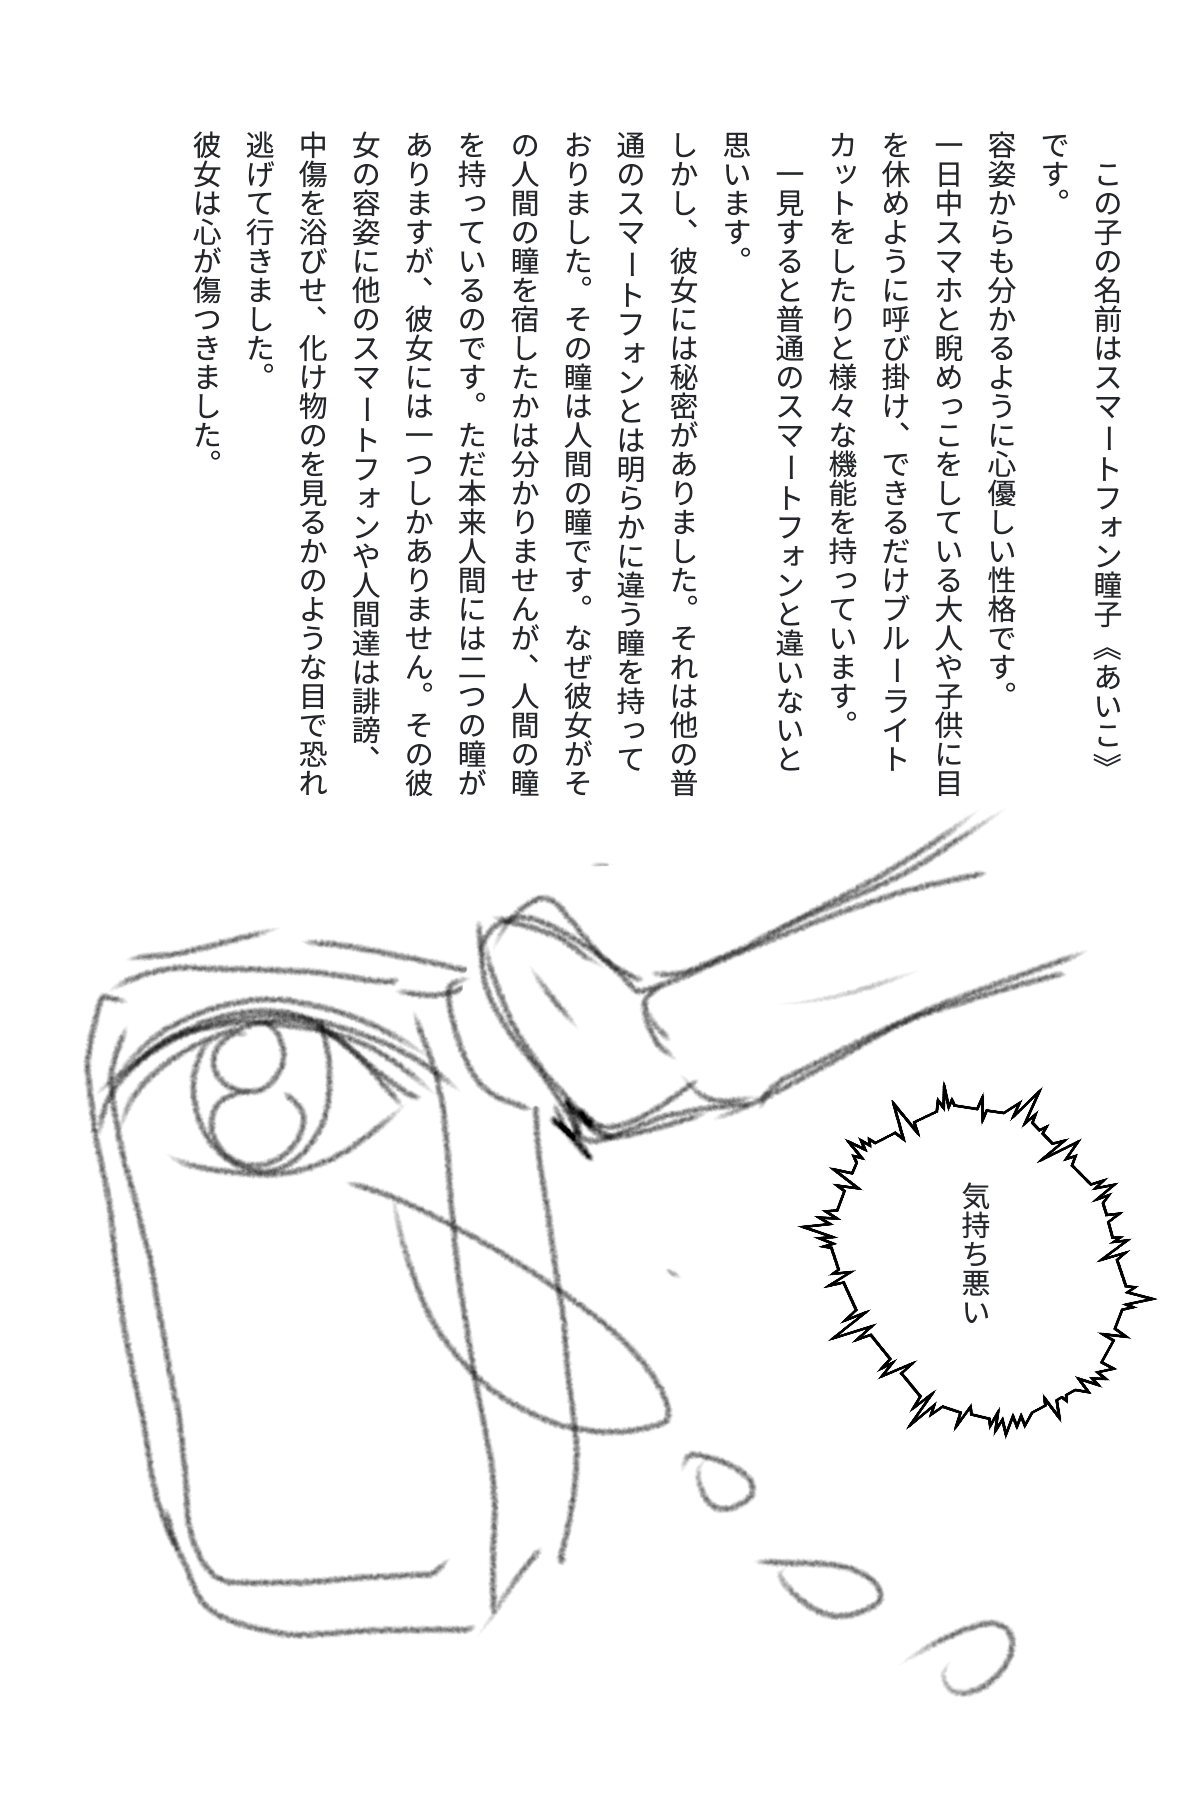 この子の名前はスマートフォン瞳子《あいこ》
です。
容姿からも分かるように心優しい性格です。
一日中スマホと睨めっこをしている大人や子供に目
を休めように呼び掛け、できるだけブルーライト
カットをしたりと様々な機能を持っています。
一見すると普通のスマートフォンと違いないと
思います。
しかし、彼女には秘密がありました。それは他の普
通のスマートフォンとは明らかに違う瞳を持って
おりました。その瞳は人間の瞳です。なぜ彼女がそ
の人間の瞳を宿したかは分かりませんが、人間の瞳
を持っているのです。ただ本来人間には二つの瞳が
ありますが、彼女には一つしかありません。その彼
女の容姿に他のスマートフォンや人間達は誹謗、
中傷を浴びせ、化け物のを見るかのような目で恐れ
逃げて行きました。
彼女は心が傷つきました。
気持ち悪い